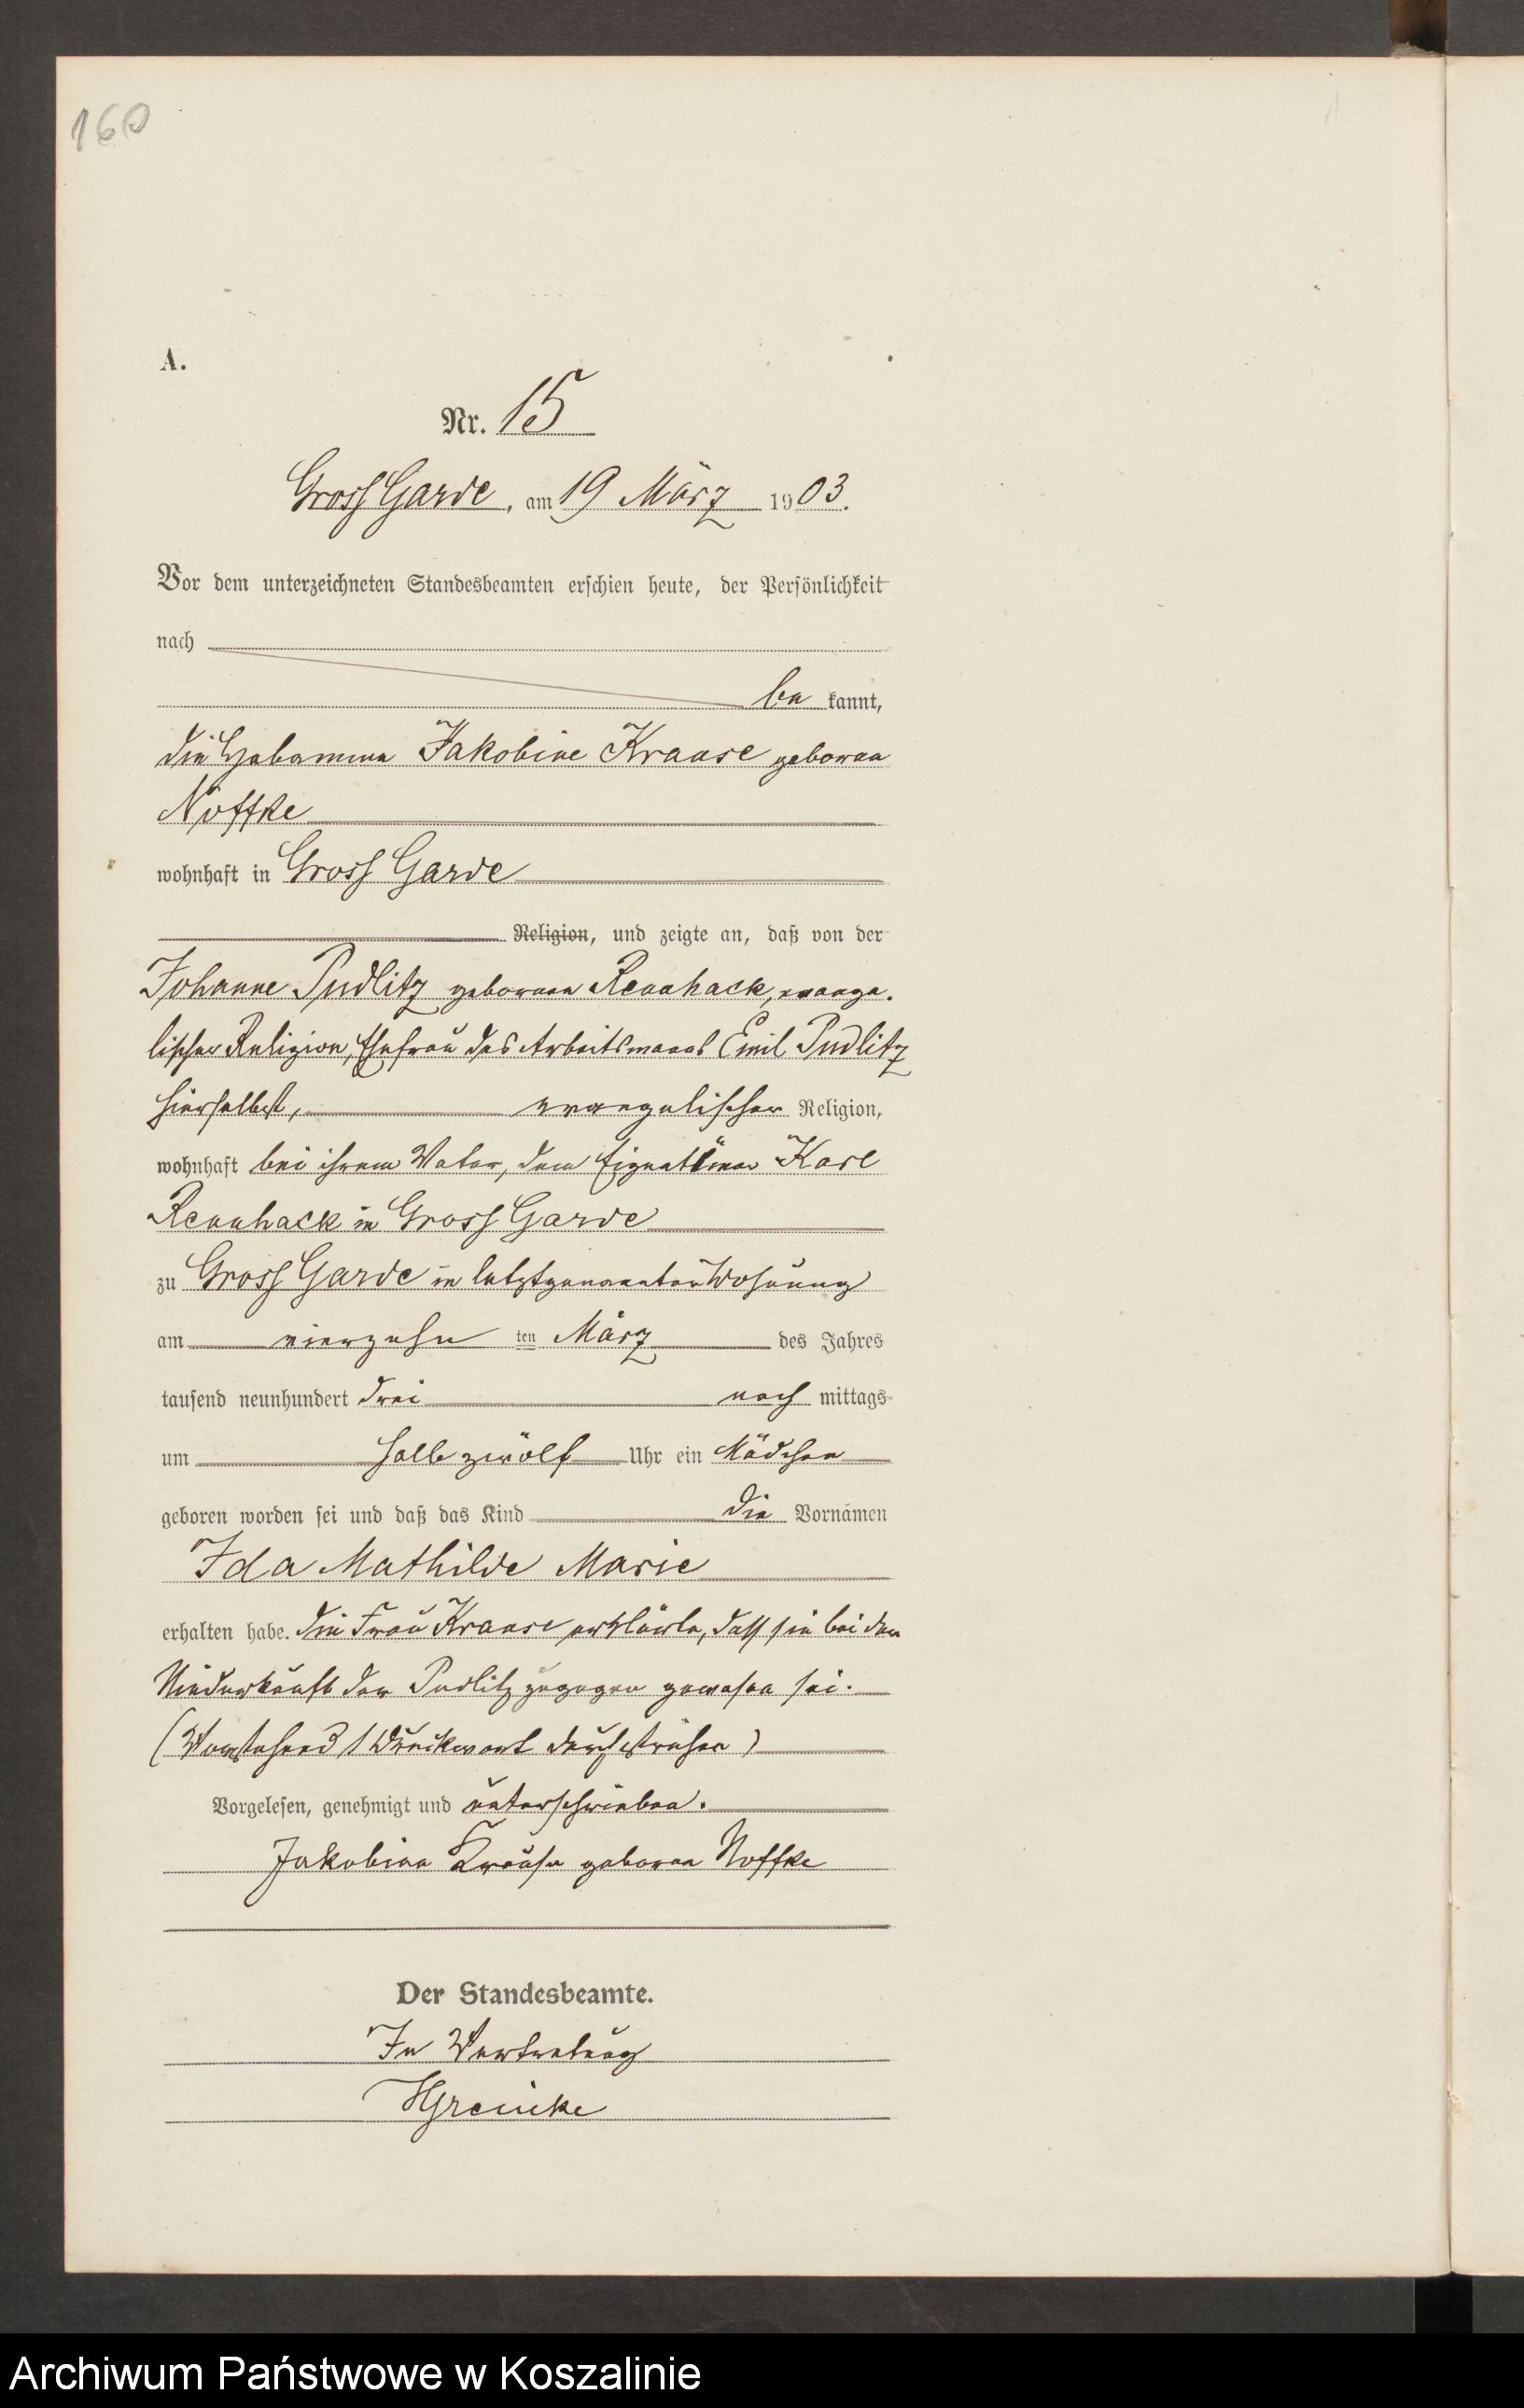 160
A.
Nr. 15
Gross Garde, am 19 März 1903.
Vor dem unterzeichneten Standesbeamten erschien heute, der Persönlichkeit
nach
be kannt,
die Hebamme Jakobine Krause geboren
Noffke
wohnhaft in Gross Garde
Religion, und zeigte an, daß von der
Johanne Pudlitz geborenen Rennhack, evange-
lischer Religion, Ehefrau des Arbeitsmanns Emil Pudlitz
hierselbst, evangelischer Religion,
wohnhaft bei ihrem Vater, dem Eigentümer Karl
Rennhack in Gross Garde
zu Gross Garde in letztgenannter Wohnung
am vierzehn ten März des Jahres
tausend neunhundert drei nach mittags
um halb zwölf Uhr ein Mädchen
geboren worden sei und daß das Kind die Vornamen
Ida Mathilde Marie
erhalten habe. Die Frau Krause erklärte, dass sie bei der
Niederkunft der Pudlitz zugegen gewesen sei.
(Vorstehend 1 Druckwort durchstrichen)
Vorgelesen, genehmigt und unterschrieben.
Jakobine Krause geboren Noffke
Der Standesbeamte.
In Vertretung
HGreinke
Archiwum Państwowe w Koszalinie